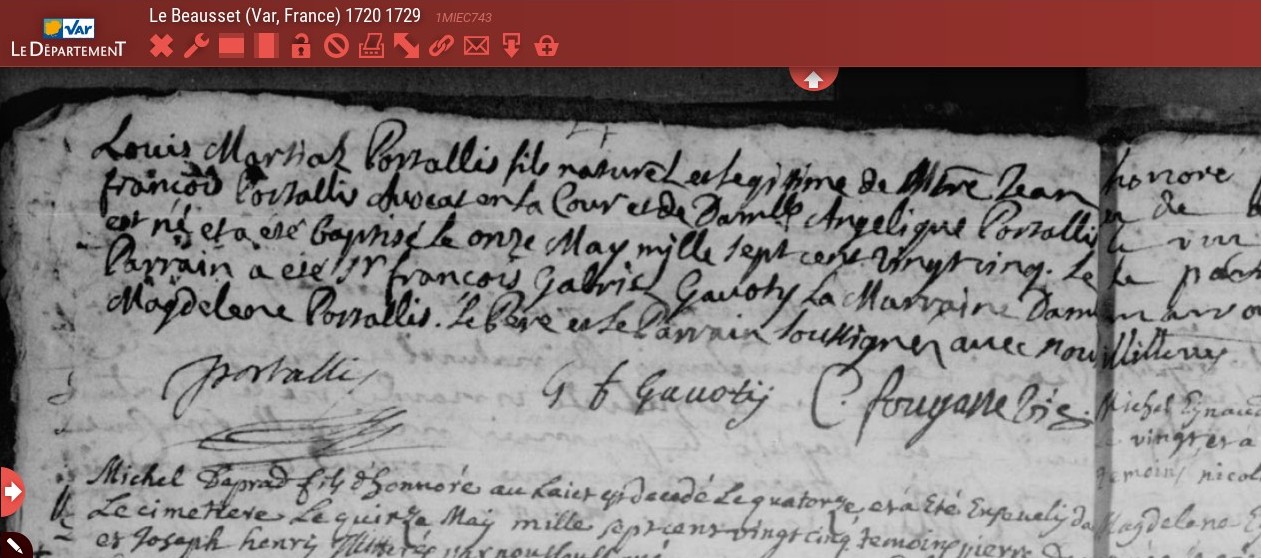 Le Beausset (Var, France) 1720 1729 1MIEC743
VAR
LE DÉPARTEMENT
Louis Martial Portallis fils naturel et legitime de Mtre Jean
françois Portallis advocat en la Cour et de Damlle Angelique Portallis
est né et a eté baptisé le onze May mille sept cent vingt cinq. Le
Parrain a eté Sr françois Gabriel Gavoty La Marraine Dam
Magdelene Portallis. Le Pere et le Parrain soussignez avec nous
portallis
G f Gavoty C. fougasse Vic.
honore
de
Michel fils d'honnoré au Laict est decedé Le quatorze, et a Eté Ensevely da
Le cimetiere Le quinze May mille sept cens vingt cinq temoins pierre
et Joseph henry Illiterés par nous
Michel
vingt et a
temoins nicol
Magdelene